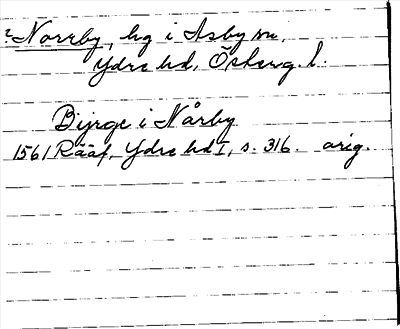 Norrby, hg i Asby sn,
Ydre hd, Österg. l.
Bijrge i Nårby
1561 Rääf, Ydre hd I, s. 316. orig.